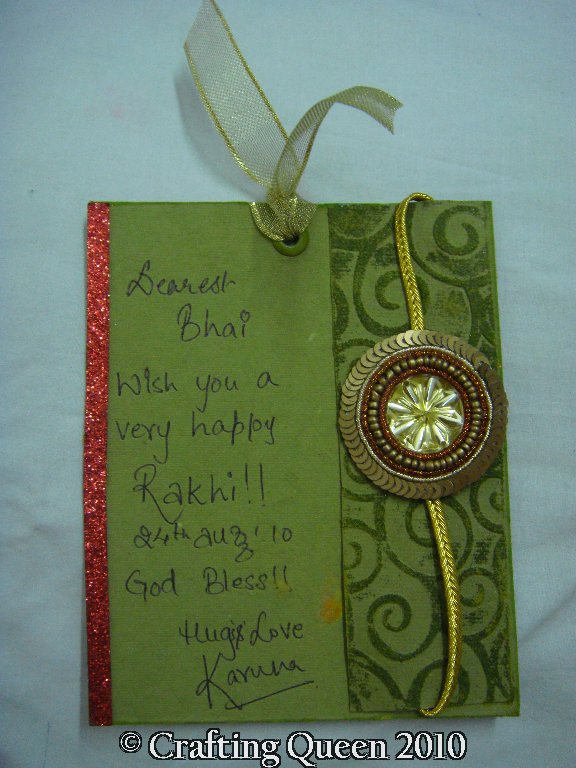 Dearest
Bhai
Wish you a
very happy
Rakhi!!
24th Aug' 10
God Bless!!
Hugs Love
Karuna
© Crafting Queen 2010